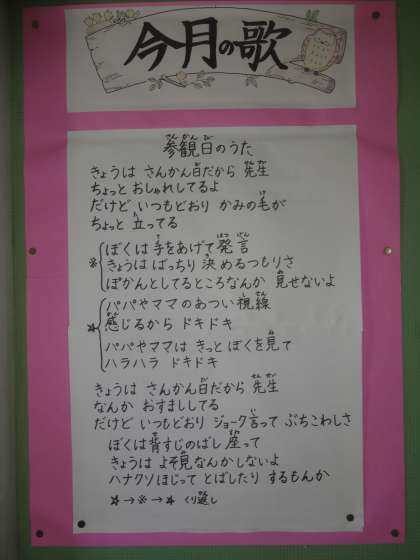 今月の歌
参観日のうた
きょうは さんかん日だから 先生
ちょっと おしゃれしてるよ
だけど いつもどおり かみの毛が
ちょっと 立ってる
※ ぼくは 手をあげて 発言
きょうは ばっちり 決めるつもりさ
ぽかんとしてるところなんか 見せないよ
★ パパやママの あつい 視線
感じるから ドキドキ
パパやママは きっと ぼくを見て
ハラハラ ドキドキ
きょうは さんかん日だから 先生
なんか おすまししてる
だけど いつもどおり ジョーク言って ぶちこわしさ
ぼくは 背すじのばし 座って
きょうは よそ見なんかしないよ
ハナクソ ほじって とばしたり するもんか
★→※→★ くり返し